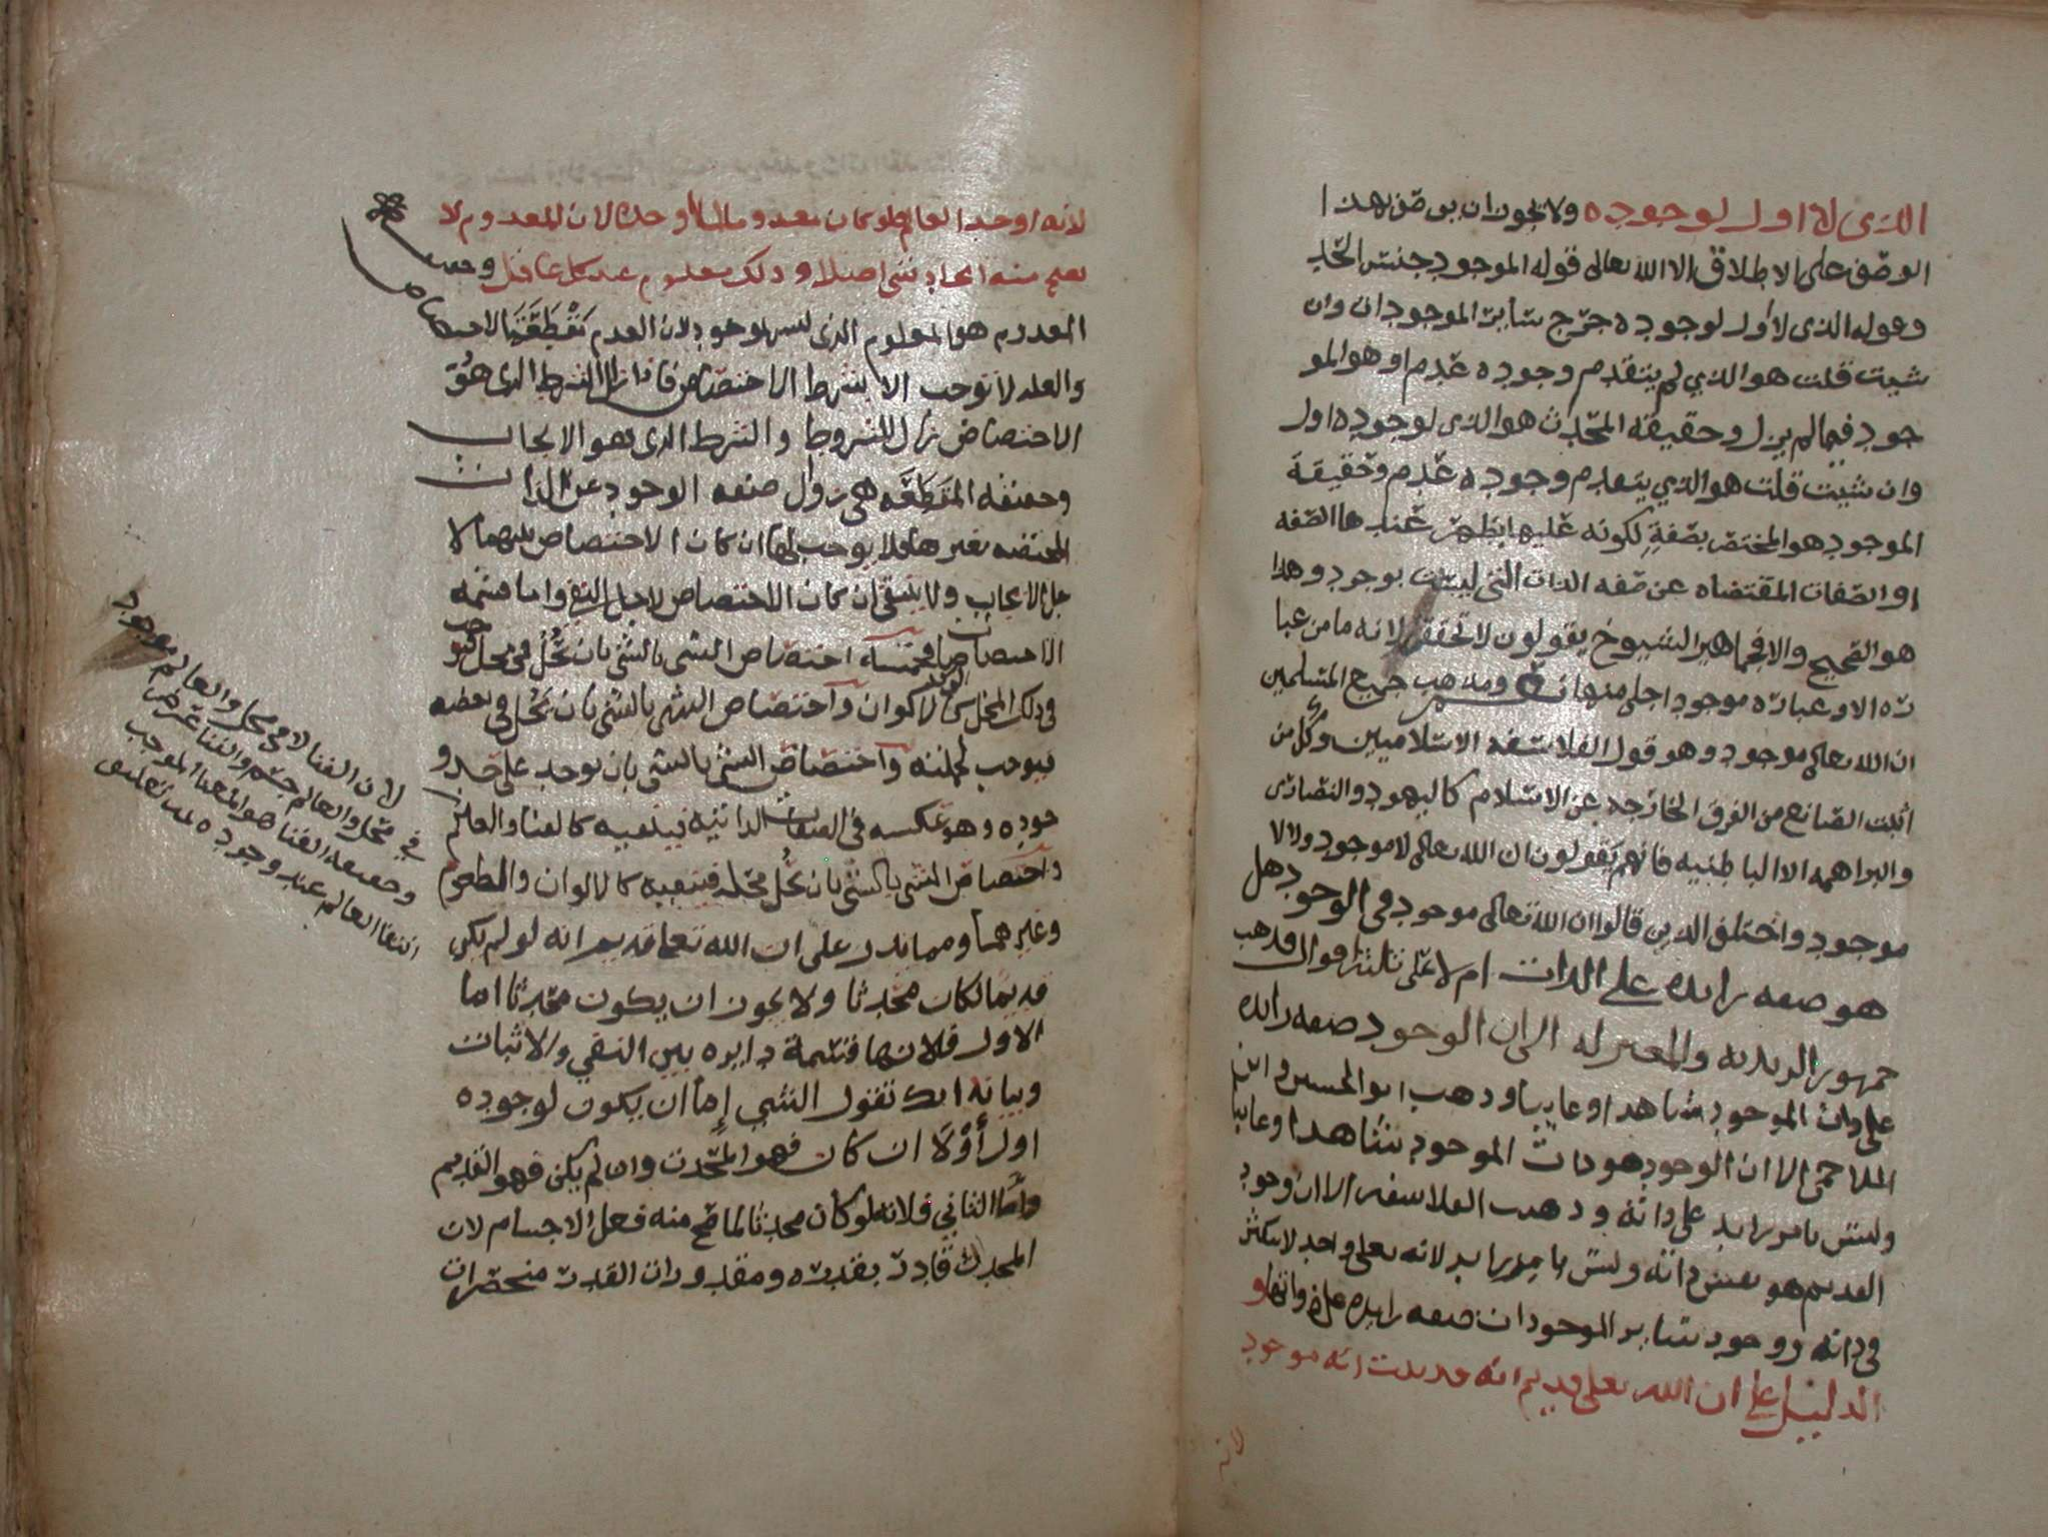 الذي لا اول لوجوده ولا يجوز ان يوصف بهذا
الوصف على الاطلاق الا الله تعالى قوله الموجود جنس الحد
وقوله الذي لا اول لوجوده خرج سائر الموجودات وان
شيت قلت هو الذي لم يتقدم وجوده عدم او هو المو
جود فيما لم يزل وحقيقة المحدث هو الذي لوجوده اول
وان شيت قلت هو الذي يتقدم وجوده عدم وحقيقة
الموجود هو المختص بصفة لكونه عليها تظهر عندها الصفه
او الصفات المقتضاه عن صفه الذات التي ليست بوجود وهذا
هو الصحيح والا فجماهير الشيوخ يقولون لا تحقق لانه ما من عبا
ره الا وعبارة موجود اجلى منها ومذهب جميع المسلمين
ان الله تعالى موجود وهو قول الفلاسفه الاسلاميين وكل من
اثبت الصانع من الفرق الخارجه عن الاسلام كاليهود والنصارى
والبراهمه الا الباطنيه فانهم يقولون ان الله تعالى لا موجود ولا لا
موجود واختلف الذين قالوا ان الله تعالى موجود في الوجود هل
هو صفه زايده على الذات ام لا على ثلثة اقوال فذهب
جمهور الزيديه والمعتزله الى ان الوجود صفه زايده
على ذات الموجود شاهدا وغايبا وذهب ابو الحسين وابن
الملاحمي الى ان الوجود هو ذات الموجود شاهدا وغايبا
وليس بامر زايد على ذاته وذهب الفلاسفه الى ان وجود
القديم هو نفس ذاته وليس بامر زايد لانه تعالى واحد لا يتكثر
في ذاته ووجود سائر الموجودات صفه زايده على ذواتها و
الدليل على ان الله تعالى قديم انه قد ثبت انه موجود
لانه
لانه اوجد العالم فلو كان معدوما لما اوجده لان المعدوم لا
يصح منه ايجاد شي اصلا وذلك معلوم عند كل عاقل وحقيقة
المعدوم هو المعلوم الذي ليس بموجود لان العدم مقطعة الاختصاص
والعله لا توجب الا بشرط الاختصاص فاذا زال الشرط الذي هو
الاختصاص زال المشروط والشرط الذي هو الايجاب
وحقيقه المقطعه هي زوال صفه الوجود عن الذات
المختصه بغيرها فلا يوجب لها ان كان الاختصاص بينهما لا
جل الايجاب ولا ينتفي ان كان الاختصاص لاجل النفي واما قسمة
الاختصاصات فخمسه اختصاص الشي بالشي بان يحل في محل فيوجب
في ذلك المحل كالاكوان واختصاص الشي بالشي بان يحل في بعضه
فيوجب لجملته واختصاص الشي بالشي بان يوجد على حد و
جوده وهو عكسه في الصفات الذاتيه فينفيه كالفنا والعالم
واختصاص الشي بالشي بان يحل محله فينفيه كالالوان والطعوم
وغيرهما ومما يدل على ان الله تعالى قديم انه لو لم يكن
قديما لكان محدثا ولا يجوز ان يكون محدثا اما
الاول فلانها قسمة دايره بين النفي والاثبات
وبيانه انك تقول الشي اما ان يكون لوجوده
اول أوْلا ان كان فهو المحدث وان لم يكن فهو القديم
واما الثاني فلانه لو كان محدثا لما صح منه فعل الاجسام لان
المحدث قادر بقدرة ومقدورات القدرة منحصرات
لان الفنا لا في محل والعالم موجود
في محل والعالم جسم والفنا عرض
وحقيقه الفنا هو المعنا الموجب
انتفا العالم عند وجوده تعليق